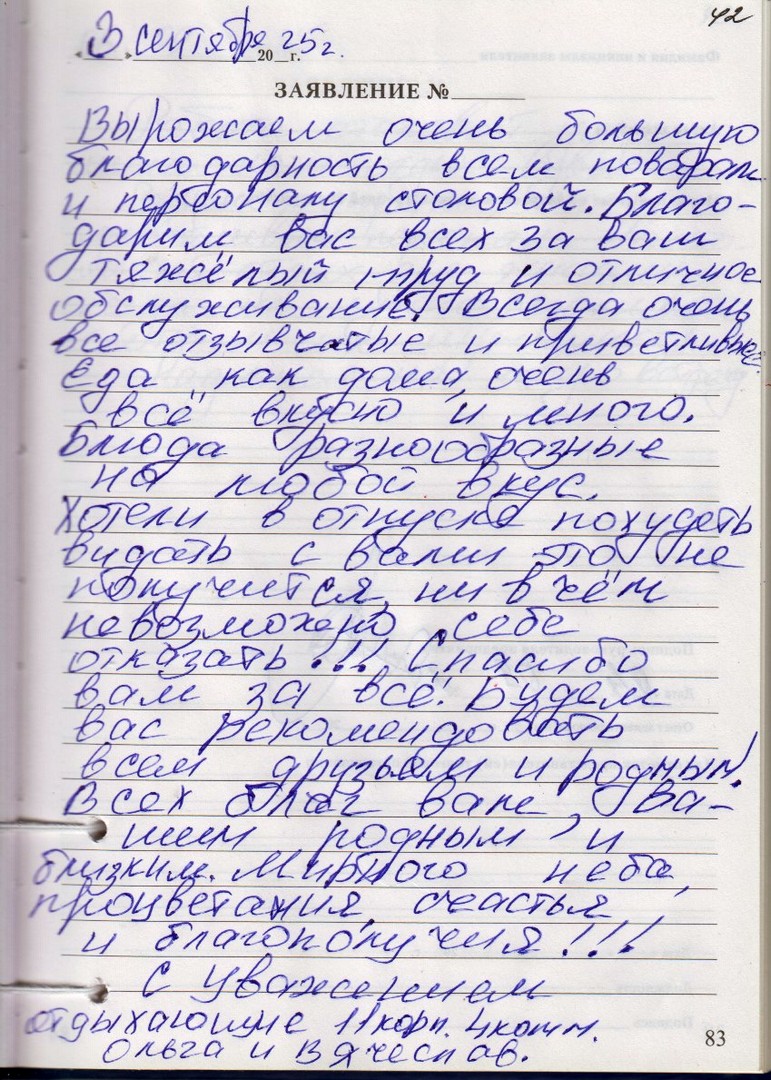 42
3 сентября 2025г.
ЗАЯВЛЕНИЕ №
Вырожаем очень большую
благодарность всем поварам
и персоналу столовой. Благо-
дарим вас всех за ваш
тяжёлый труд и отличное
обслуживание. Всегда очень
все отзывчатые и приветливые.
Еда как дома, очень
всё вкусно и много.
Блюда разнообразные
на любой вкус.
Хотели в отпуске похудеть
видать с вами это не
получится, ни в чём
невозможено себе
отказать...! Спасибо
вам за всё. Будем
вас рекомендовать
всем друзьям и родным!
Всех благ вам, Ва-
шим родным и
близким. Мирного неба,
процветания, счастья
и благополучия!!!
С Уважением
отдыхающие 11 корп. 4 комн.
Ольга и Вячеслав.
83